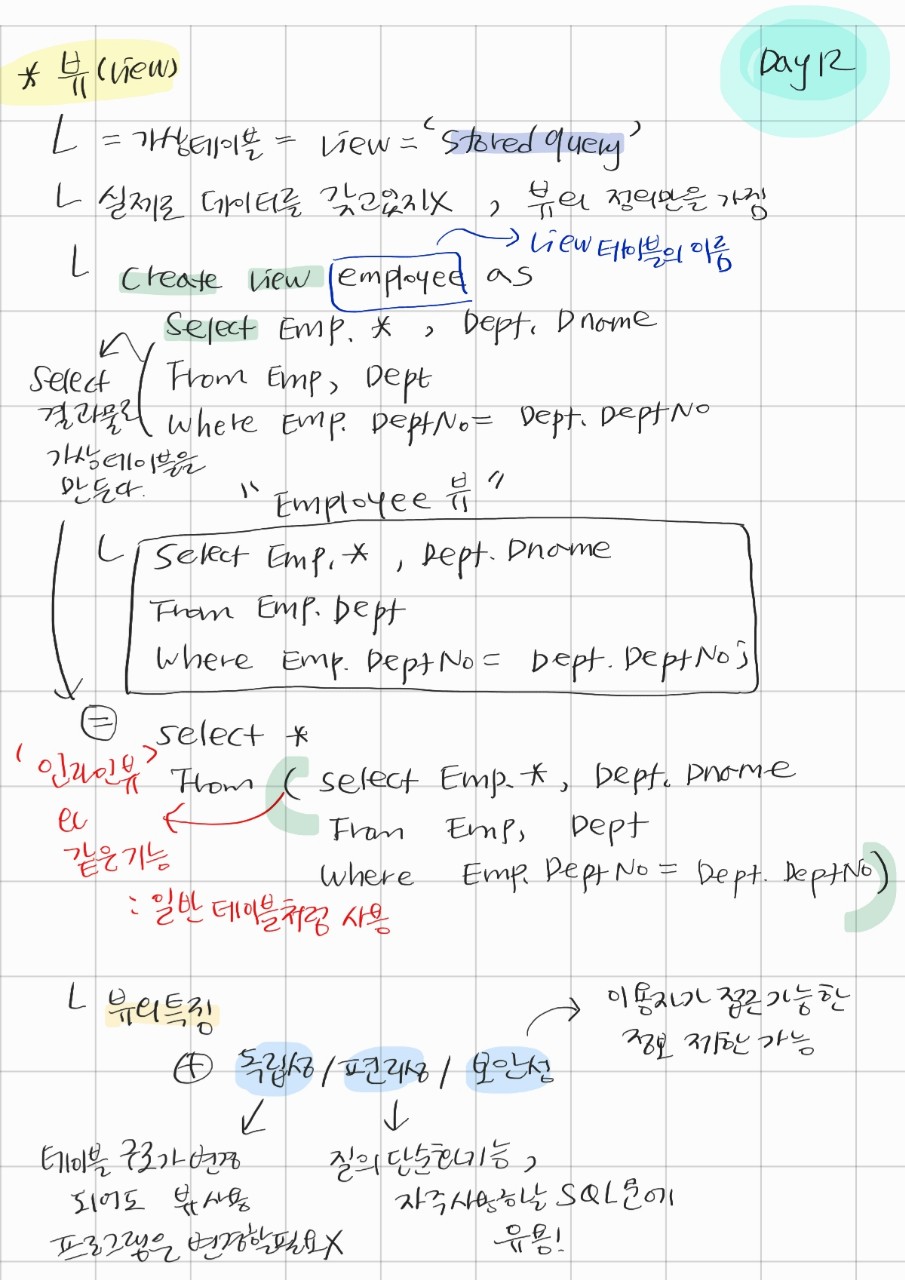 * 뷰(view)
Day 12
ㄴ = 가상테이블 = view = 'stored query'
ㄴ 실제로 데이터를 갖고있지X , 뷰의 정의만을 가짐
→ view 테이블의 이름
ㄴ Create view employee as
Select Emp. * , Dept. Dname
From Emp, Dept
Where Emp. DeptNo = Dept. DeptNo
Select
결과물로
가상테이블을
만든다.
"Employee 뷰"
ㄴ Select Emp. * , Dept. Dname
From Emp. Dept
Where Emp. DeptNo = Dept. DeptNo;
=
select *
From ( select Emp. * , Dept. Dname
From Emp, Dept
Where Emp. DeptNo = Dept. DeptNo)
'인라인뷰'
와
같은기능
: 일반 테이블처럼 사용
ㄴ 뷰의특징
+ 독립성 / 편리성 / 보안성
→ 이용자가 접근가능한
정보 제한 가능
테이블 구조가 변경
되어도 뷰사용
프로그램은 변경할필요X
질의 단순화기능,
자주사용하는 SQL문에
유용!